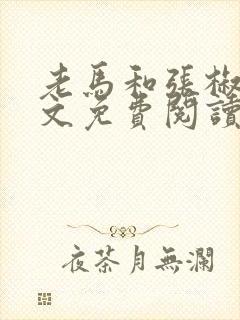 老馬和張椒
文免費閱讀
夜茶月無瀾